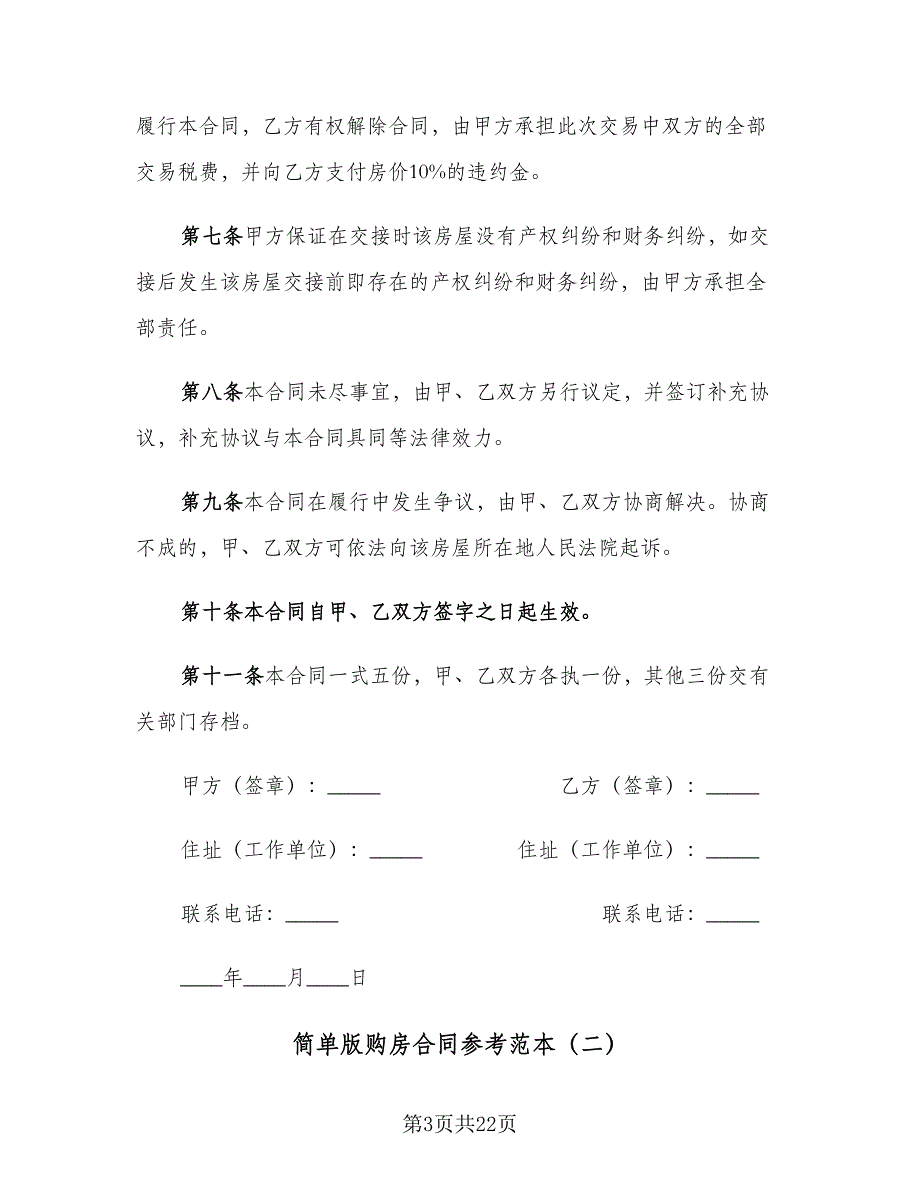 履行本合同，乙方有权解除合同，由甲方承担此次交易中双方的全部
交易税费，并向乙方支付房价10%的违约金。
第七条甲方保证在交接时该房屋没有产权纠纷和财务纠纷，如交
接后发生该房屋交接前即存在的产权纠纷和财务纠纷，由甲方承担全
部责任。
第八条本合同未尽事宜，由甲、乙双方另行议定，并签订补充协
议，补充协议与本合同具同等法律效力。
第九条本合同在履行中发生争议，由甲、乙双方协商解决。协商
不成的，甲、乙双方可依法向该房屋所在地人民法院起诉。
第十条本合同自甲、乙双方签字之日起生效。
第十一条本合同一式五份，甲、乙双方各执一份，其他三份交有
关部门存档。
甲方（签章）：_____ 乙方（签章）：_____
住址（工作单位）：_____ 住址（工作单位）：_____
联系电话：_____ 联系电话：_____
____年____月____日
简单版购房合同参考范本（二）
第3页共22页